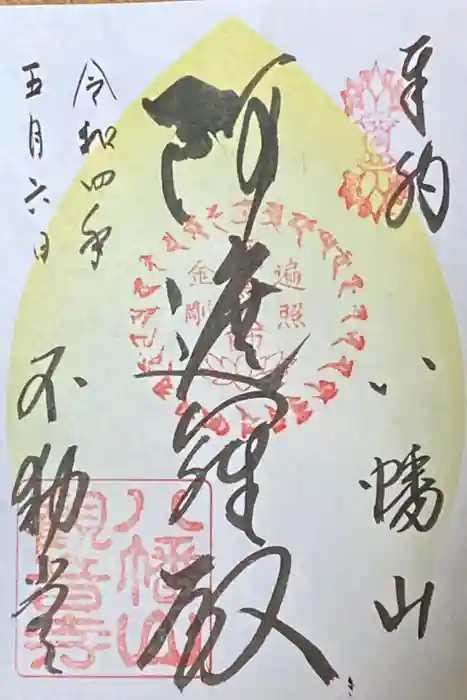 奉納
八幡山
阿遮羅殿
遍照
金剛
令和四年
五月六日
不動堂
八幡山
観音寺